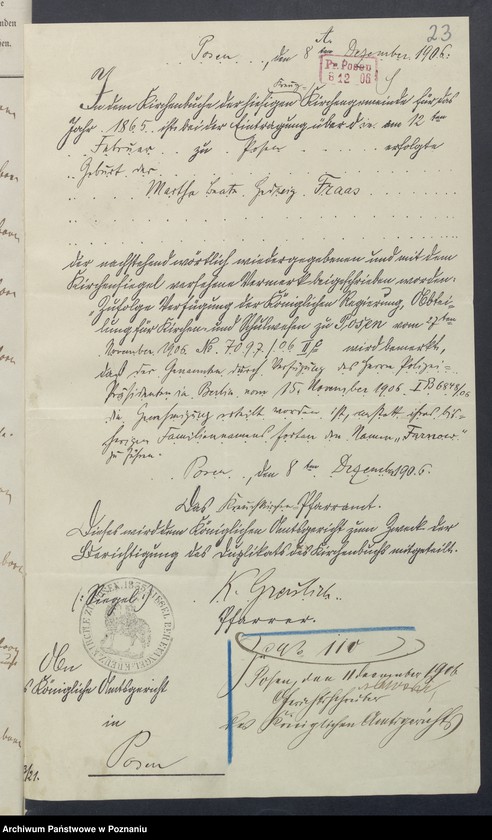 23
A.
Posen, den 8ten Dezember 1906.
Pr. Posen
8 12 06
Kreuz-
In dem Kirchenbuche der hiesigen Kirchengemeinde für das
Jahr 1865 ist bei der Eintragung über die am 12ten
Februar zu Posen erfolgte
Geburt der
Martha Beate Hedwig Fraas
der nachstehend wörtlich wiedergegebene und mit dem
Kirchensiegel versehene Vermerk beigeschrieben worden:
"Zufolge Verfügung der Königlichen Regierung, Abtei-
lung für Kirchen- und Schulwesen zu Posen vom 17ten
November 1906 No. 7097/06 II wird bemerkt,
daß der Genannten durch Verfügung des Herrn Polizei-
Präsidenten in Berlin vom 15. November 1906 I 6848/06
die Genehmigung erteilt worden ist, anstatt ihres bis-
herigen Familiennamens fortan den Namen "Farnoer"
zu führen.
Posen, den 8ten Dezember 1906.
Das Kreuzkirchen Pfarramt.
Dieses wird dem Königlichen Amtsgericht zum Zweck der
Berichtigung des Duplikats des Kirchenbuchs mitgeteilt.
(: Siegel :)
K. Greulich
Pfarrer.
An
das Königliche Amtsgericht
in
Posen
pag 110
Posen, den 11 Dezember 1906
Gerichtsschreiber
des Königlichen Amtsgerichts
Archiwum Państwowe w Poznaniu